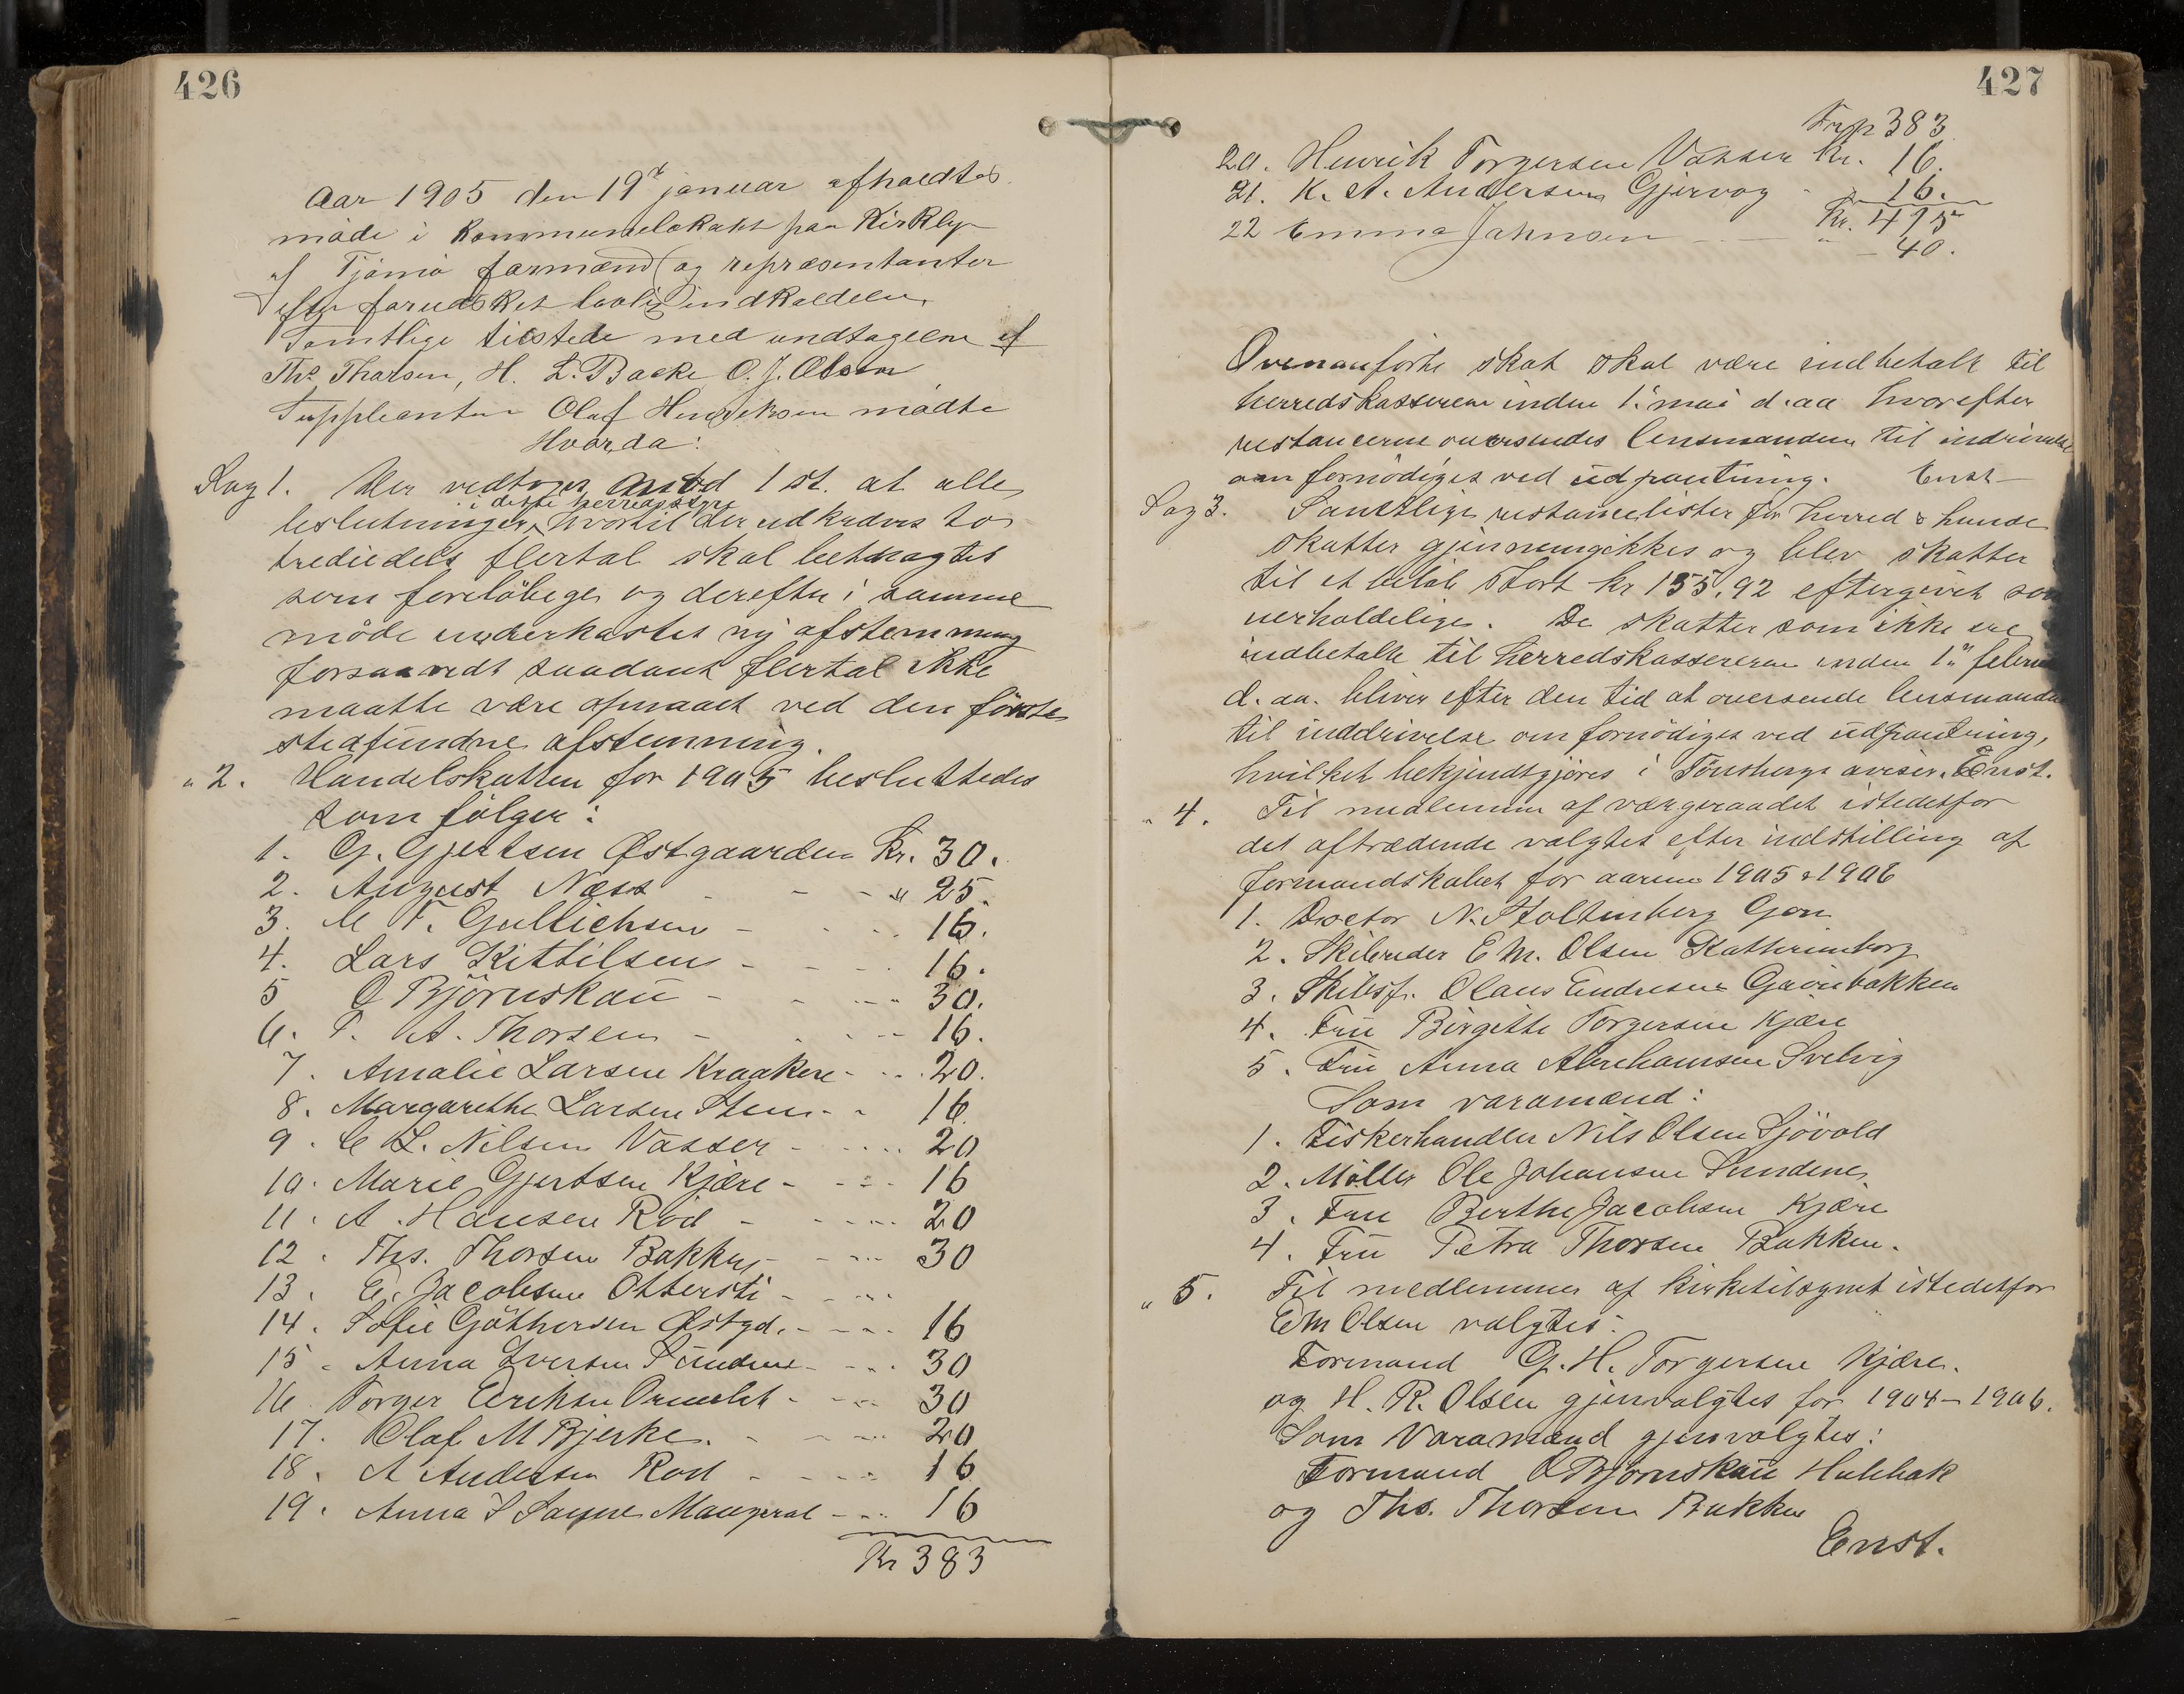 426
Aar 1905 den 19de januar afholdtes
møde i kommunelokalet paa Kirkly
af Tjømø formænd og repræsentanter
efter forudsket lovlig indkaldelse.
Samtlige tilstede med undtagelse af
Ths. Thorsen, H. L. Backe O. J. Olsson
Suppleanten Olaf Henriksen mødte
Hvorda:
Sag 1. Der vedtoges mod 1 st. at alle
dette herredsstyre
beslutninger, hvortil der udkræves to
trediedels flertal skal betragtes
som foreløbige og derefter i samme
møde underkastes ny afstemning
forsaavidt saadant flertal ikke
maatte være opnaaet ved den første
stedfundne afstemning.
" 2. Handelskatten for 1905 besluttedes
som følger:
1. G. Gjertsen Østgaarden Kr. 30.
2. August Næss - - - " 25.
3. M F. Gullichsen - - - 16.
4. Lars Kittilsen - - - 16.
5 O Bjørnskau - - - 30.
6. P. A. Thorsen - - - 16.
7. Amalie Larsen Kraakere - - - 20.
8. Margarethe Larsen Sten - - 16
9. C L. Nilsen Vasser - - - 20
10. Marie Gjertsen Kjære - - - 16
11. A. Hansen Rød - - - 20
12. Ths. Thorsen Bakken - - - 30
13. E. Jacobsen Ottersti - - -
14. Sofie Göthersen Østgd. - - - 16
15. Anna Iversen Sundene - - - 30
16. Torger Eriksen Ormelet - - - 30
17. Olaf M Bjerke. - - - 20
18. A Andersen Rød - - - 16
19. Anna S Sayne Maugerøl - - - 16
Kr 383
427
Trsp 383
20. Henrik Torgersen Vasser Kr. 16.
21. K. A. Andersen Gjervog - " 16.
Kr. 415
22 Emma Jahnsen - - " - 40.
Ovenanførte skat skal være indbetalt til
herredskassereren inden 1. mai d. aa hvorefter
restancerne oversendes lensmanden til inddrivelse
om fornødiges ved udpantning. Enst
Sag 3. Samtlige restancelister for herred & hunde
skatter gjennemgikkes og blev skatter
til et beløb stort kr 155.92 eftergivet som
uerholdelige. De skatter som ikke ere
indbetalt til herredskassereren inden 1ste februar
d. aa. bliver efter den tid at oversende lensmanden
til inddrivelse om fornødiges ved udpantning,
hvilket bekjendtgjøres i Tønsbergs aviser. Enst.
" 4. Til medlemmer af værgeraadet istedetfor
det aftrædende valgtes efter indstilling af
formandskabet for aarene 1905 & 1906
1. Doctor N. Stoltenberg Gon
2. Skibsreder E M. Olsen Kathrineborg
3. Skibsf. Olaus Endresen Grønbakken
4. Fru Birgitte Torgersen Kjære
5. Fru Anna Abrahamsen Svelvig
Som varamænd:
1. Fiskerhandler Nils Olsen Sjøvold
2. Møller Ole Johansen Sundene
3. Fru Berthe Jacobsen Kjære
4. Fru Petra Thorsen Bakken.
" 5. Til medlemmer af kirketilsynet istedetfor
E M Olsen valgtes:
Formand G. H. Torgersen Kjære.
og H. R. Olsen gjenvalgtes for 1904 - 1906.
Som Varamænd gjenvalgtes:
Formand O Bjørnskau Holebak
og Ths. Thorsen Bakken
Enst.